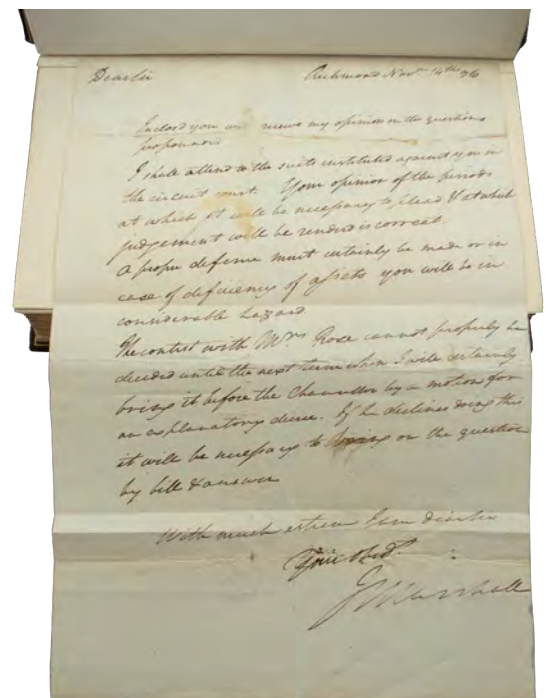 Dear Sir Richmond Novr. 14th 96
Inclosd you will receive my opinion on the questions
propounded
I shall attend to the suits instituted against you in
the circuit court. Your opinion of the periods
at which it will be necessary to plead & at which
judgement will be renderd is correct.
A proper defense must certainly be made or in
case of deficiency of assets you will be in
considerable hazard.
The contest with Mrs Rose cannot properly be
decided until the next term when I will certainly
bring it before the Chancellor by a motion for
an explanatory decree. If he declines doing this
it will be necessary to bring on the question
by bill & answer
With much esteem I am dear Sir
Your Obedt.
J Marshall